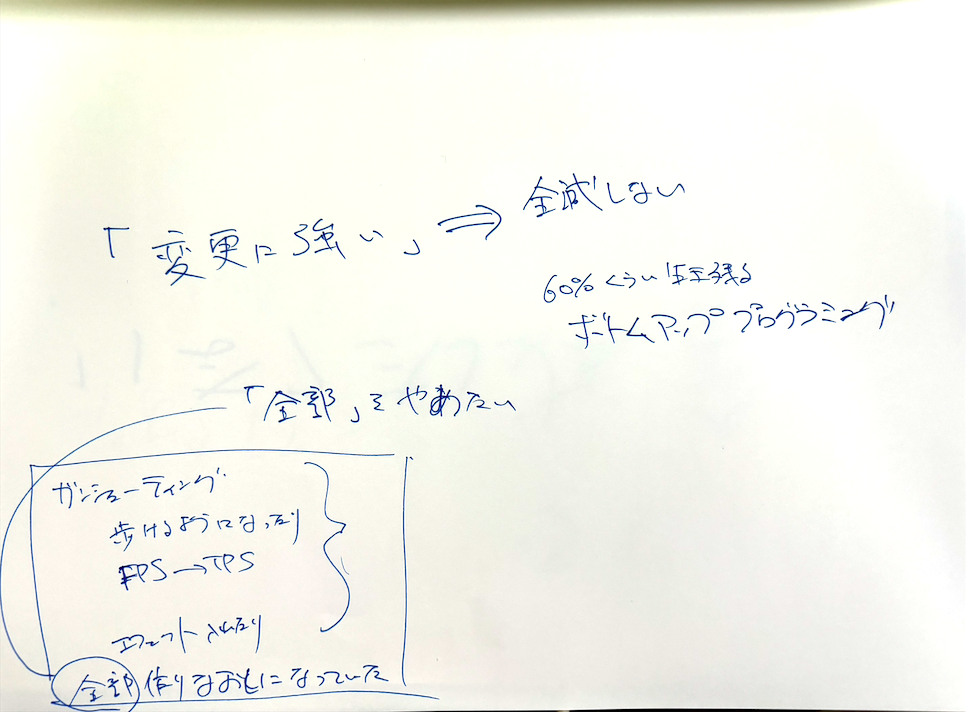 「変更に強い」⇒ 全滅しない
60%くらい生き残る
ボトムアッププログラミング
「全部」をやめたい
ガンシューティング
歩けるようになったり
FPS→TPS
エフェクト入れたり
全部作りなおしになっていた